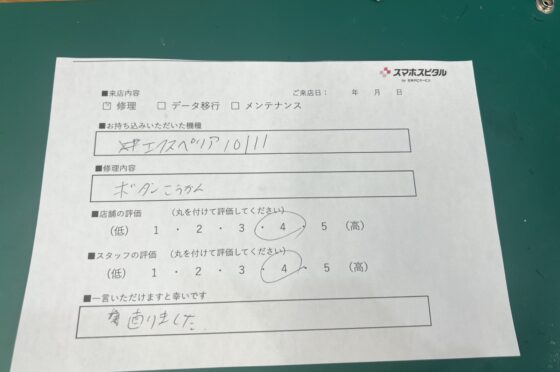 スマホスピタル
■来店内容
ご来店日： 年 月 日
☑ 修理 □ データ移行 □ メンテナンス
■お持ち込みいただいた機種
エクスペリア10/11
■修理内容
ボタンこうかん
■店舗の評価 （丸を付けて評価してください）
（低） 1 ・ 2 ・ 3 ・ 4 ・ 5 （高）
■スタッフの評価 （丸を付けて評価してください）
（低） 1 ・ 2 ・ 3 ・ 4 ・ 5 （高）
■一言いただけますと幸いです
直りました